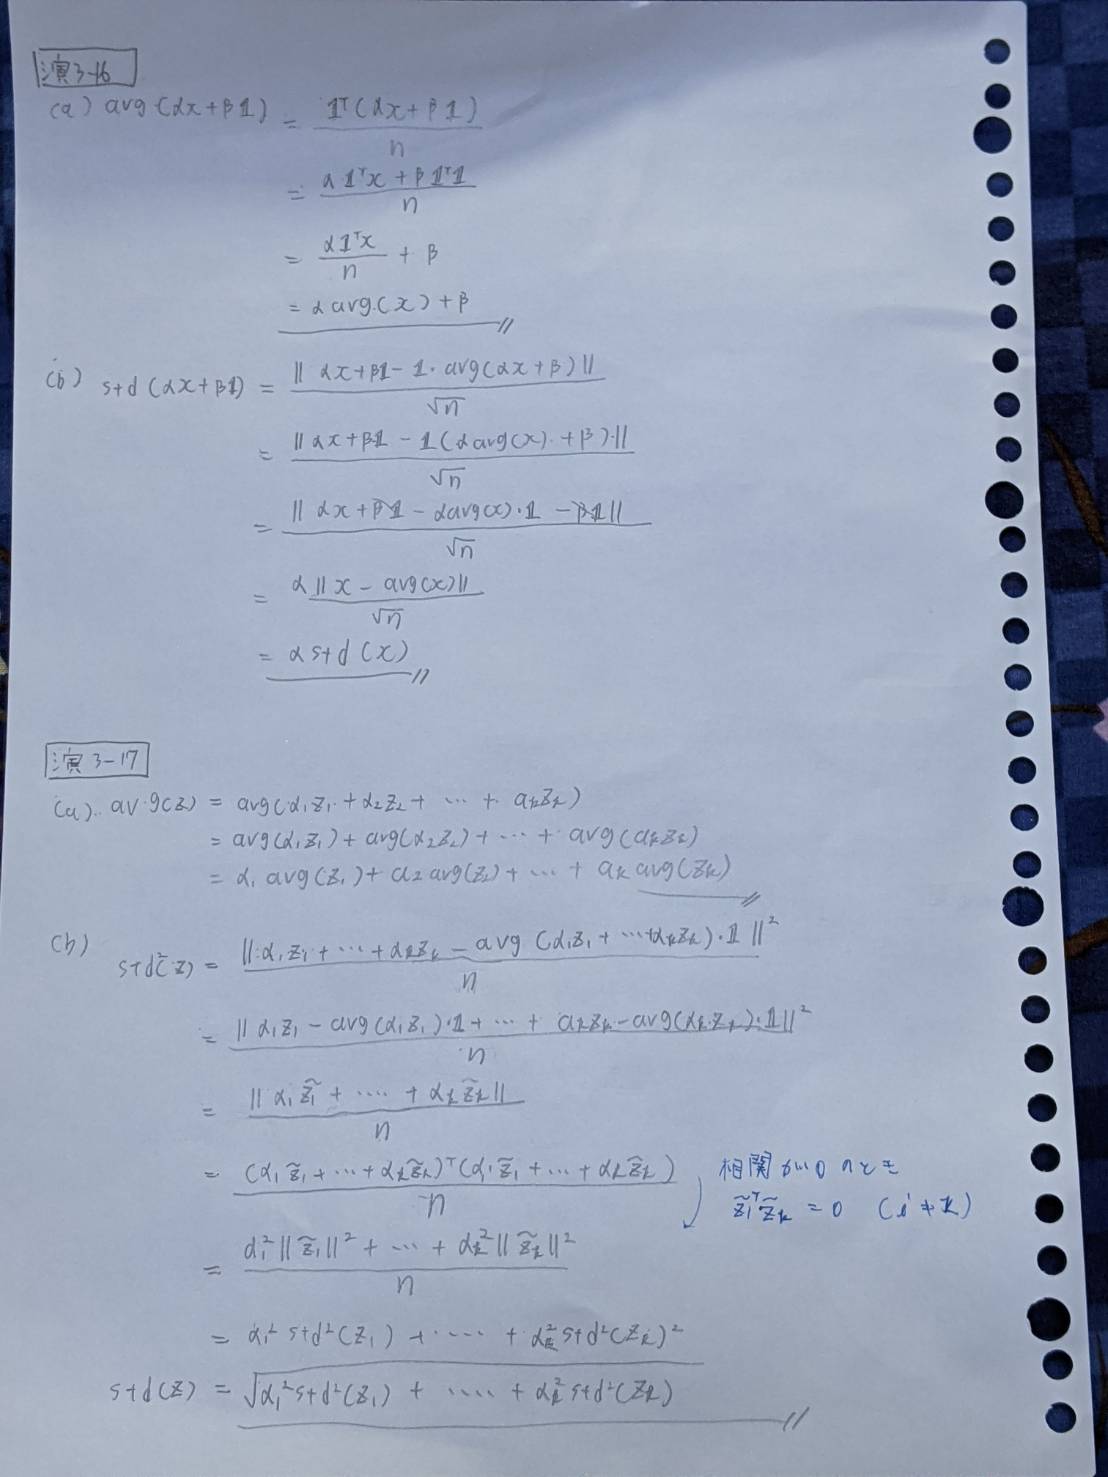 演3-16
(a) avg(αx+β𝟙) = 𝟙ᵀ(αx+β𝟙) / n
= (α𝟙ᵀx + β𝟙ᵀ𝟙) / n
= α𝟙ᵀx / n + β
= α avg(x) + β
(b) std(αx+β𝟙) = ‖αx+β𝟙 - 𝟙·avg(αx+β)‖ / √n
= ‖αx+β𝟙 - 𝟙(α avg(x)+β)‖ / √n
= ‖αx+β𝟙 - α avg(x)·𝟙 - β𝟙‖ / √n
= α‖x - avg(x)‖ / √n
= α std(x)
演3-17
(a) avg(z) = avg(α₁z₁+α₂z₂+ ⋯ + αₖzₖ)
= avg(α₁z₁) + avg(α₂z₂) + ⋯ + avg(αₖzₖ)
= α₁ avg(z₁) + α₂ avg(z₂) + ⋯ + αₖ avg(zₖ)
(b) std²(z) = ‖α₁z₁ + ⋯ + αₖzₖ - avg(α₁z₁ + ⋯ + αₖzₖ)·𝟙‖² / n
= ‖α₁z₁ - avg(α₁z₁)·𝟙 + ⋯ + αₖzₖ - avg(αₖzₖ)·𝟙‖² / n
= ‖α₁z̃₁ + ⋯ + αₖz̃ₖ‖ / n
= (α₁z̃₁ + ⋯ + αₖz̃ₖ)ᵀ(α₁z̃₁ + ⋯ + αₖz̃ₖ) / n
相関が0のとき
z̃ᵢᵀz̃ₖ = 0 (i≠k)
= (α₁²‖z̃₁‖² + ⋯ + αₖ²‖z̃ₖ‖²) / n
= α₁² std²(z₁) + ⋯ + αₖ² std²(zₖ)²
std(z) = √(α₁² std²(z₁) + ⋯ + αₖ² std²(zₖ))